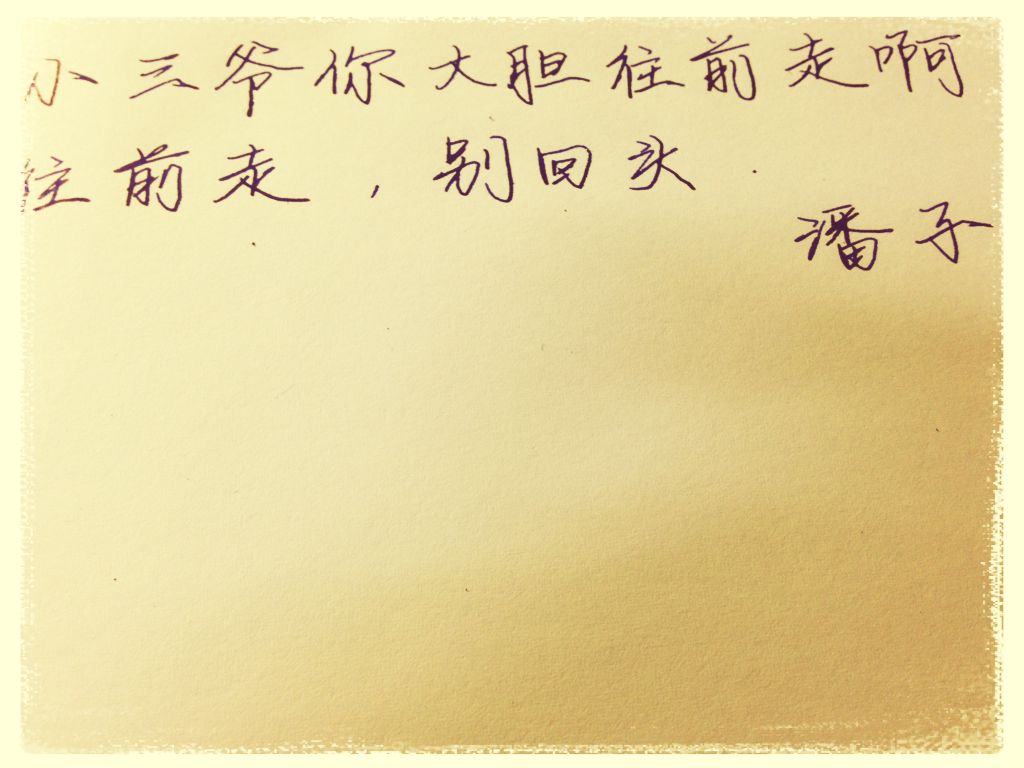 小三爷你大胆往前走啊
往前走，别回头.
潘子